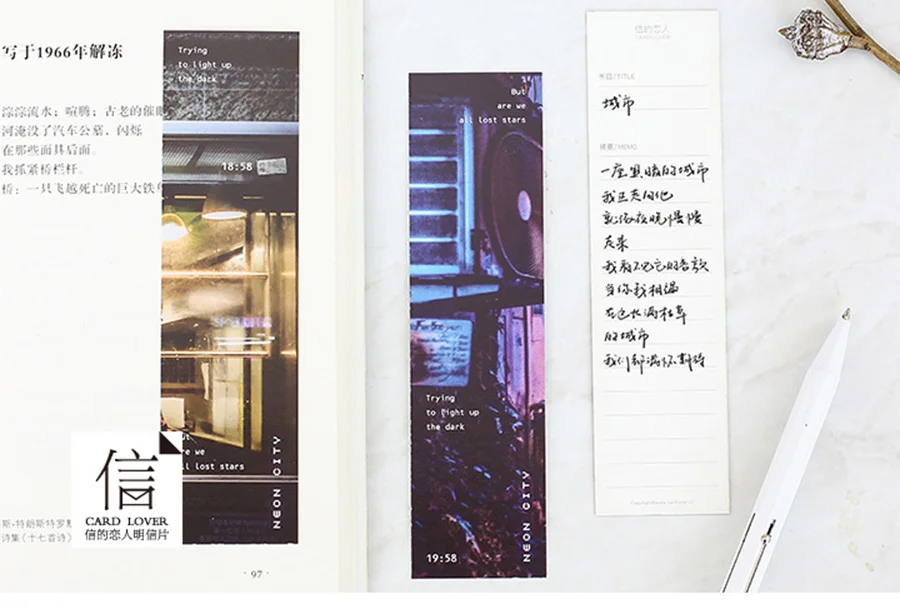 写于1966年解冻
淙淙流水；喧腾；古老的催眠
河淹没了汽车公墓、闪烁
在那些面具后面。
我抓紧桥栏杆。
桥：一只飞越死亡的巨大铁鸟
诗集（十七首诗）
· 97 ·
Trying
to light up
the dark
18:58
are we
all lost stars
NEON CITY
信
CARD LOVER
信的恋人明信片
But
are we
all lost stars
Trying
to light up
the dark
NEON CITY
19:58
信的恋人
CARD LOVER
书目/TITLE
城市
摘要/MEMO
一座黑暗的城市
我
就像夜晚慢慢
走来
我看不见它的容颜
当你我相遇
在这长满杜草
的城市
我们都满怀期待